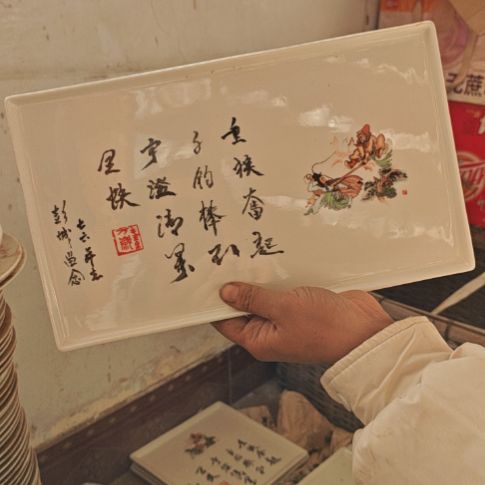 金猴奋起
千钧棒玉
宇澄清万
里埃
七六年
彭城留念